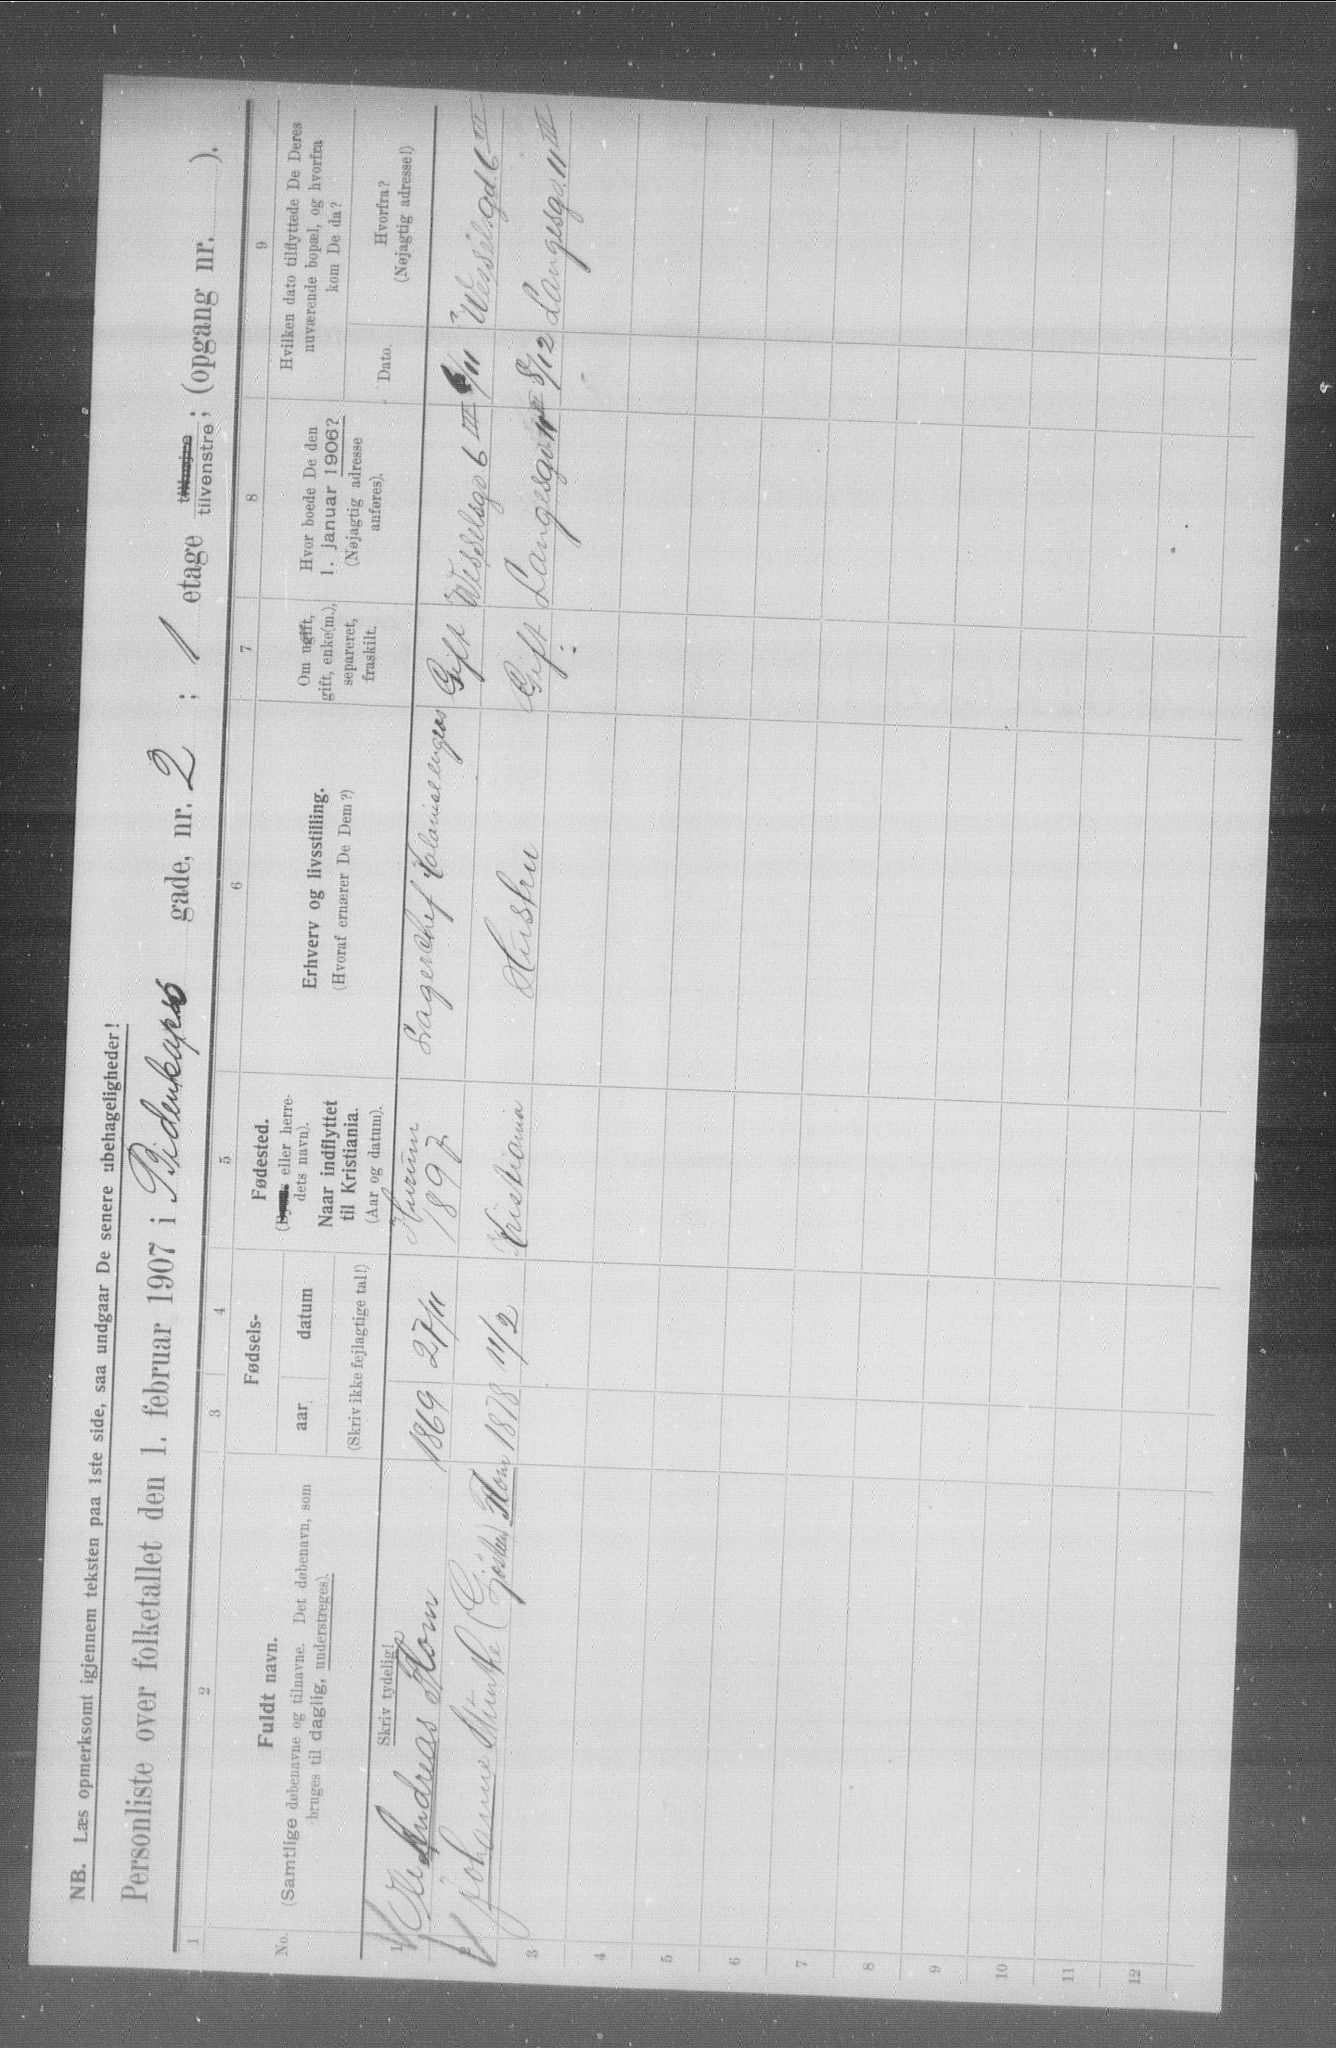 NB. Læs opmerksomt igjennem teksten paa 1ste side, saa undgaar De senere ubehageligheder!
Personliste over folketallet den 1. februar 1907 i Bidenkaps gade, nr. 2 ; 1 etage tilhøjre ; (opgang nr. ).
tilvenstre;
1 2 3 4 5 6 7 8 9
No.
Fuldt navn.
(Samtlige døbenavne og tilnavne. Det døbenavn, som
bruges til daglig, understreges).
Skriv tydelig!
Fødsels-
aar
datum
(Skriv ikke fejlagtige tal!)
Fødested.
(Byens eller herre-
dets navn).
Naar indflyttet
til Kristiania.
(Aar og datum).
Erhverv og livsstilling.
(Hvoraf ernærer De Dem?)
Om ugift,
gift, enke(m.),
separeret,
fraskilt.
Hvor boede De den
1. januar 1906?
(Nøjagtig adresse
anføres).
Hvilken dato tilflyttede De Deres
nuværende bopæl, og hvorfra
kom De da?
Dato.
Hvorfra?
(Nøjagtig adresse!)
1 Ole Andreas Hom 1869 27/11 Hurum 1897 Lagerchef Colonial engros Gift Wesselsgd 6 III 6/11 Wesselsgd. 6 III
2 Johanne Munthe ( ) Hom 1878 11/2 Kristiania Hustru Gift Langesgd 11 III 8/12 Langesgd. 11 III
3
4
5
6
7
8
9
10
11
12